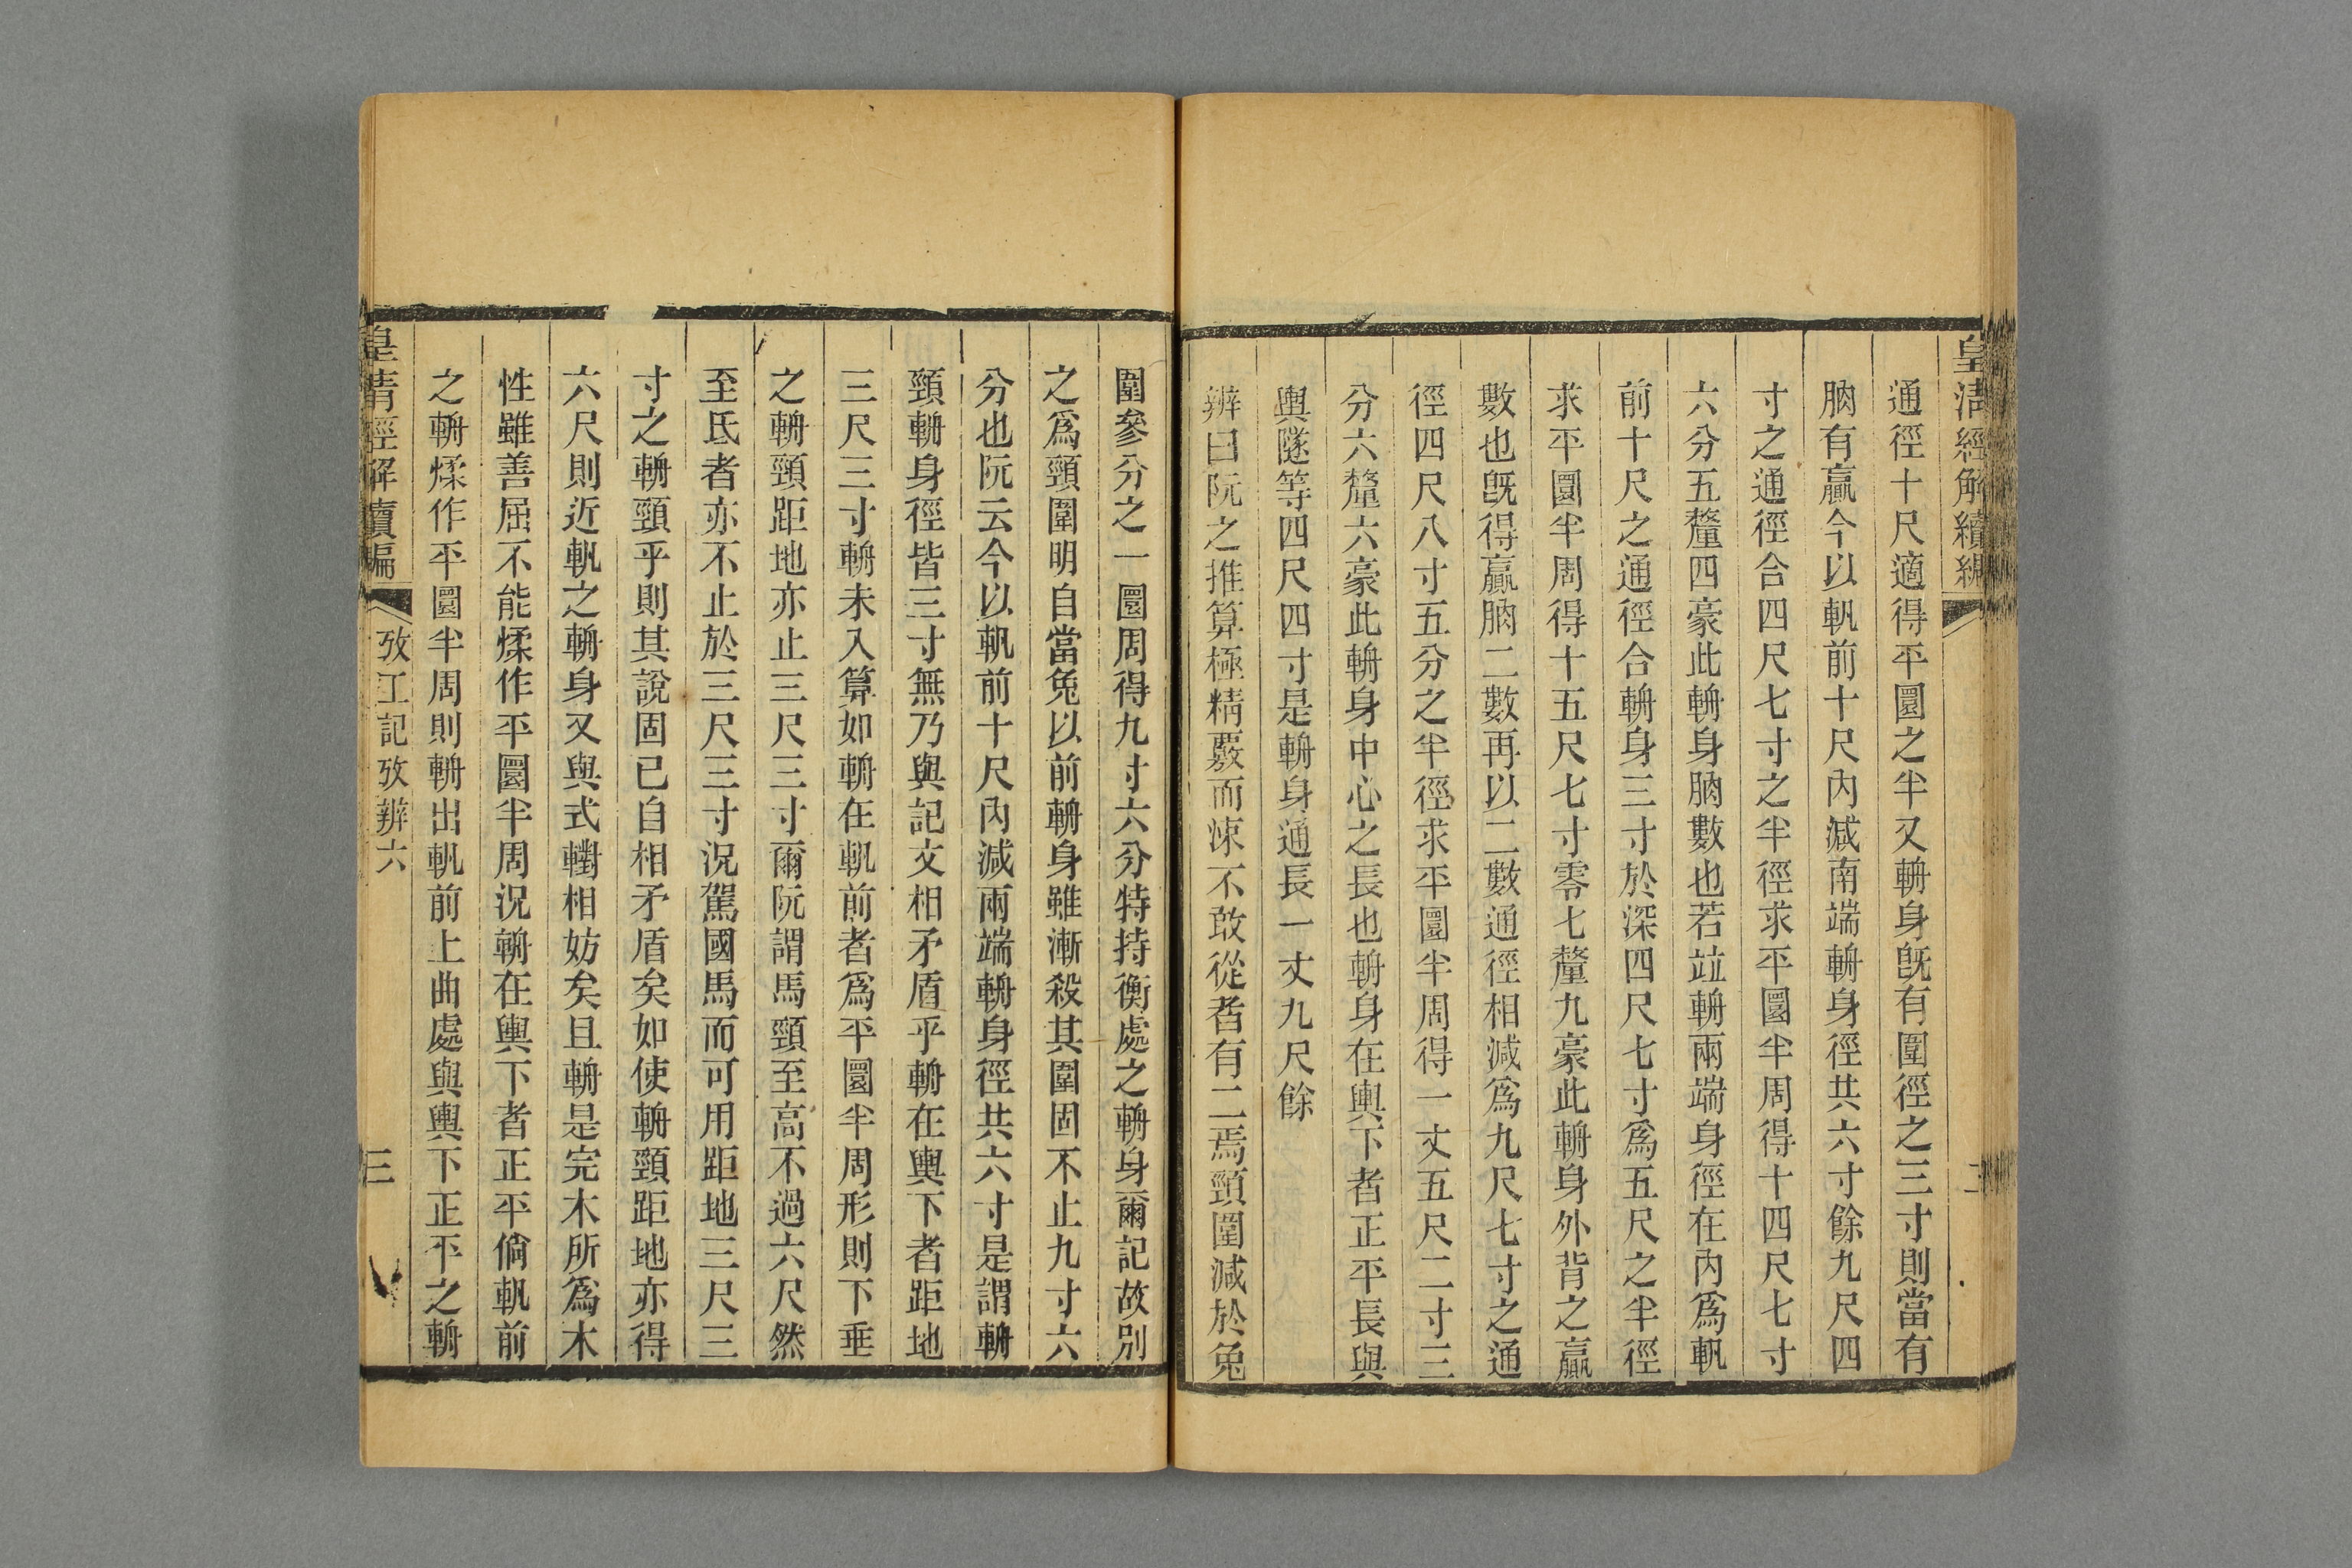 皇清經解續編
二
通徑十尺適得平圜之半又輈身旣有圍徑之三寸則當有
朒有贏今以軓前十尺內減南端輈身徑共六寸餘九尺四
寸之通徑合四尺七寸之半徑求平圜半周得十四尺七寸
六分五釐四豪此輈身朒數也若竝輈兩端身徑在內爲軓
前十尺之通徑合輈身三寸於深四尺七寸爲五尺之半徑
求平圜半周得十五尺七寸零七釐九豪此輈身外背之贏
數也旣得贏朒二數再以二數通徑相減爲九尺七寸之通
徑四尺八寸五分之半徑求平圜半周得一丈五尺二寸三
分六釐六豪此輈身中心之長也輈身在輿下者正平長與
輿隧等四尺四寸是輈身通長一丈九尺餘
辨曰阮之推算極精覈而涑不敢從者有二焉頸圍減於兔
圍參分之一圜周得九寸六分特持衡處之輈身爾記故別
之爲頸圍明自當兔以前輈身雖漸殺其圍固不止九寸六
分也阮云今以軓前十尺內減兩端輈身徑共六寸是謂輈
頸輈身徑皆三寸無乃與記文相矛盾乎輈在輿下者距地
三尺三寸輈未入算如輈在軓前者爲平圜半周形則下垂
之輈頸距地亦止三尺三寸爾阮謂馬頸至高不過六尺然
至氐者亦不止於三尺三寸況駕國馬而可用距地三尺三
寸之輈頸乎則其說固已自相矛盾矣如使輈頸距地亦得
六尺則近軓之輈身又與式轛相妨矣且輈是完木所爲木
性雖善屈不能煣作平圜半周況輈在輿下者正平倘軓前
之輈煣作平圜半周則輈出軓前上曲處與輿下正平之輈
皇清經解續編
攷工記攷辨六
三